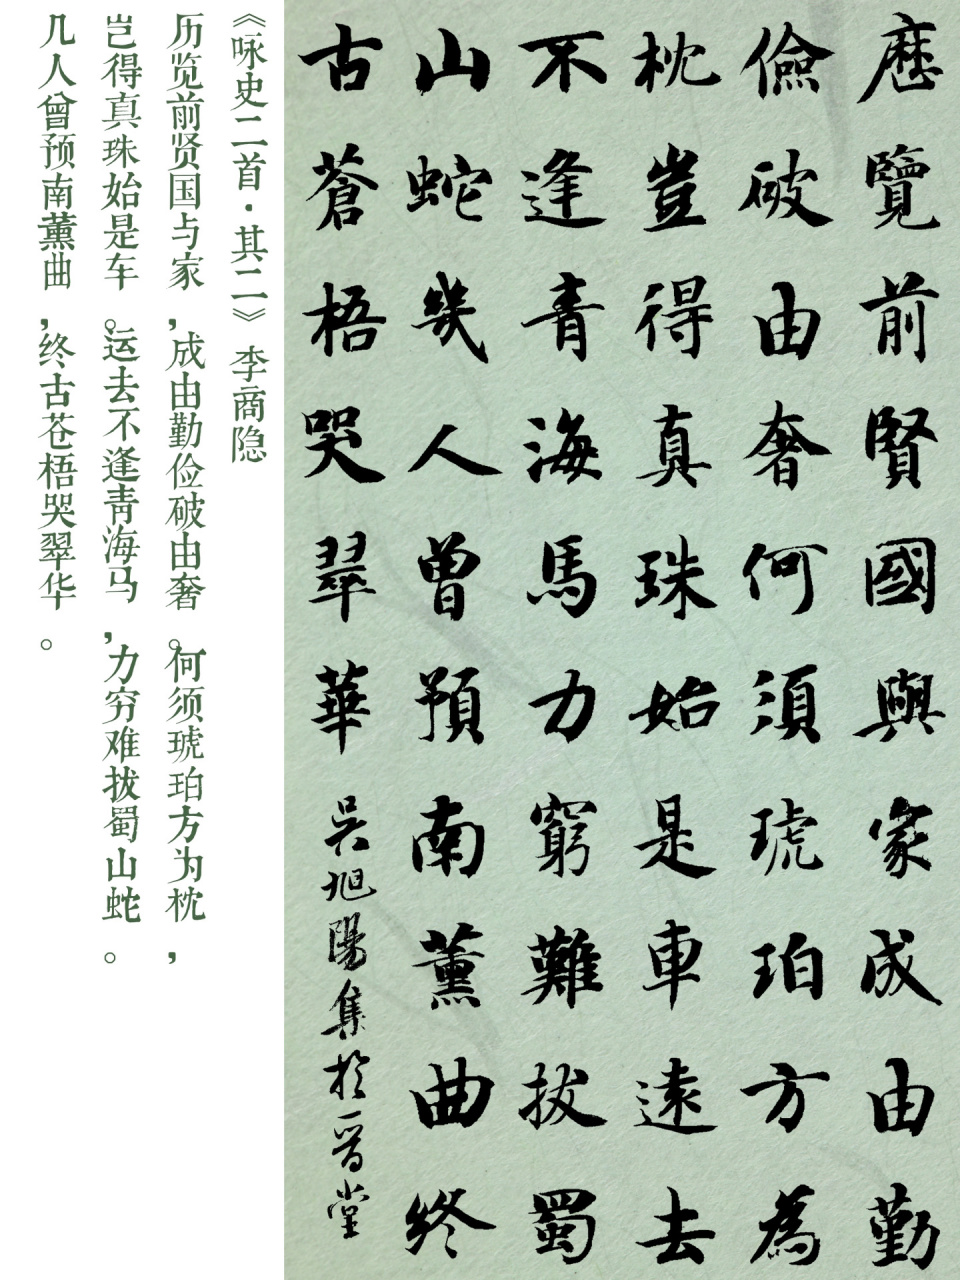 歷覽前賢國與家成由勤
儉破由奢何須琥珀方為
枕豈得真珠始是車遠去
不逢青海馬力窮難拔蜀
山蛇幾人曾預南薰曲終
古蒼梧哭翠華 吳旭陽集於一晉堂
《咏史二首·其二》李商隐
历览前贤国与家,成由勤俭破由奢。何须琥珀方为枕,
岂得真珠始是车。运去不逢青海马,力穷难拔蜀山蛇。
几人曾预南薰曲,终古苍梧哭翠华。